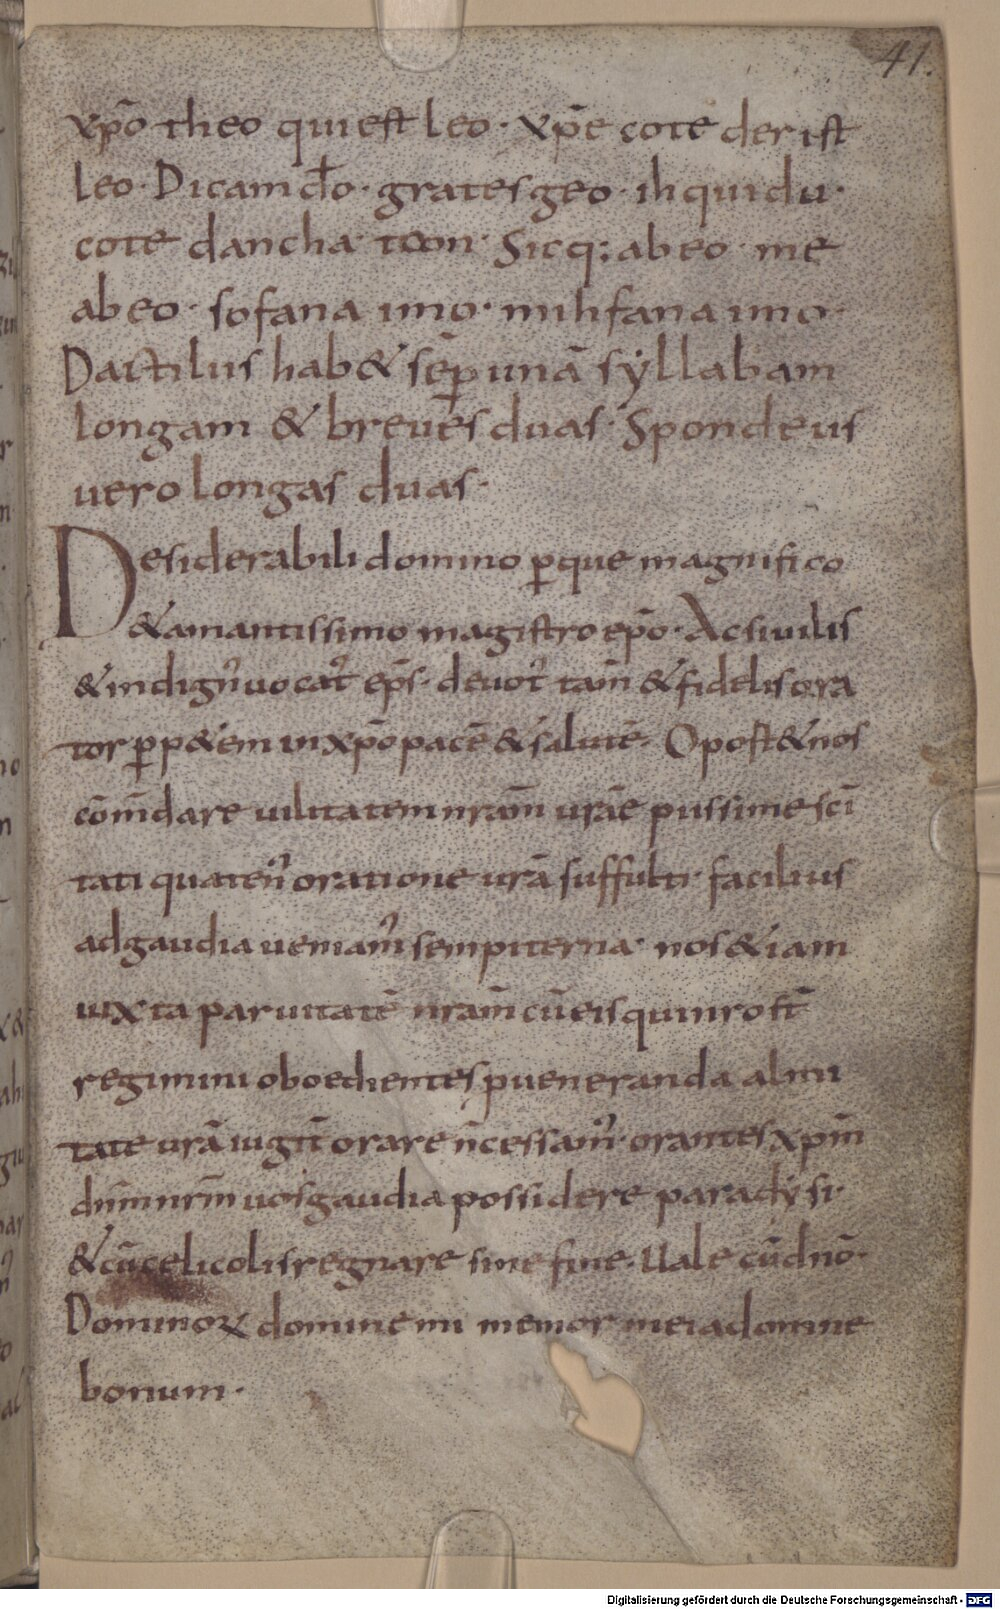 41.
xp̄o theo qui est leo · xp̄e cote der ist
leo · Dicam dō · grates geo · ih quidu ·
cote dancha toon · Sicq; abeo · me
abeo · so fana imo · mih fana imo ·
Dactilus hab& sēp unā syllabam
longam & breues duas · Spondeus
uero longas duas ·
Desiderabili domino perque magnifico
& amantissimo magistro ep̄o · Ac si uilis
& indign᷒ uocat᷒ ep̄s · deuot᷒ tam̄ & fidelis ora
tor p̱p&em in xp̄o pacē & salutē · Oport& nos
com̄dare uilitatem nrām urāe piissime sc̄i
tati quaten᷒ oratione urā suffulti · facilius
ad gaudia ueniam᷒ sempiterna · nos &iam
iuxta paruitatē nrām cū eis qui nro st̄
regimini oboedientes p ueneranda almi
tate urā iugit̄ orare n̄cessam᷒ · orantes xpm̄
dnm̄ nrm̄ uos gaudia possidere paradysi ·
& cū celicolis regnare sine fine · Uale cū dnō ·
Dominoꝝ domine mi memor mei ad omne
bonum ·
Digitalisierung gefördert durch die Deutsche Forschungsgemeinschaft - DFG